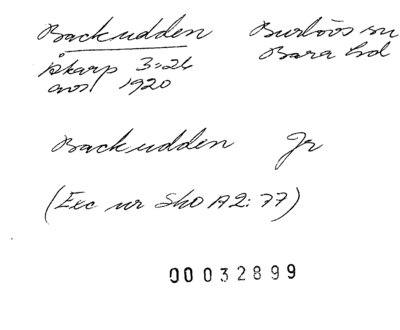 Backudden Burlövs sn
Åkarp 3:26 Bara hd
avs 1920
Backudden Jr
(Exc ur SkO A2:77)
00032899